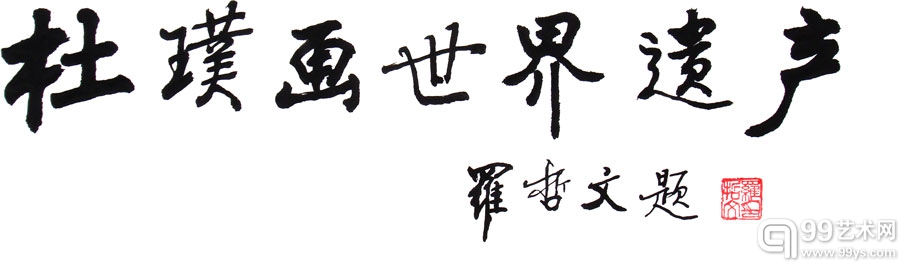 杜璞画世界遗产
羅哲文题
羅哲文
99艺术网
www.99ys.com